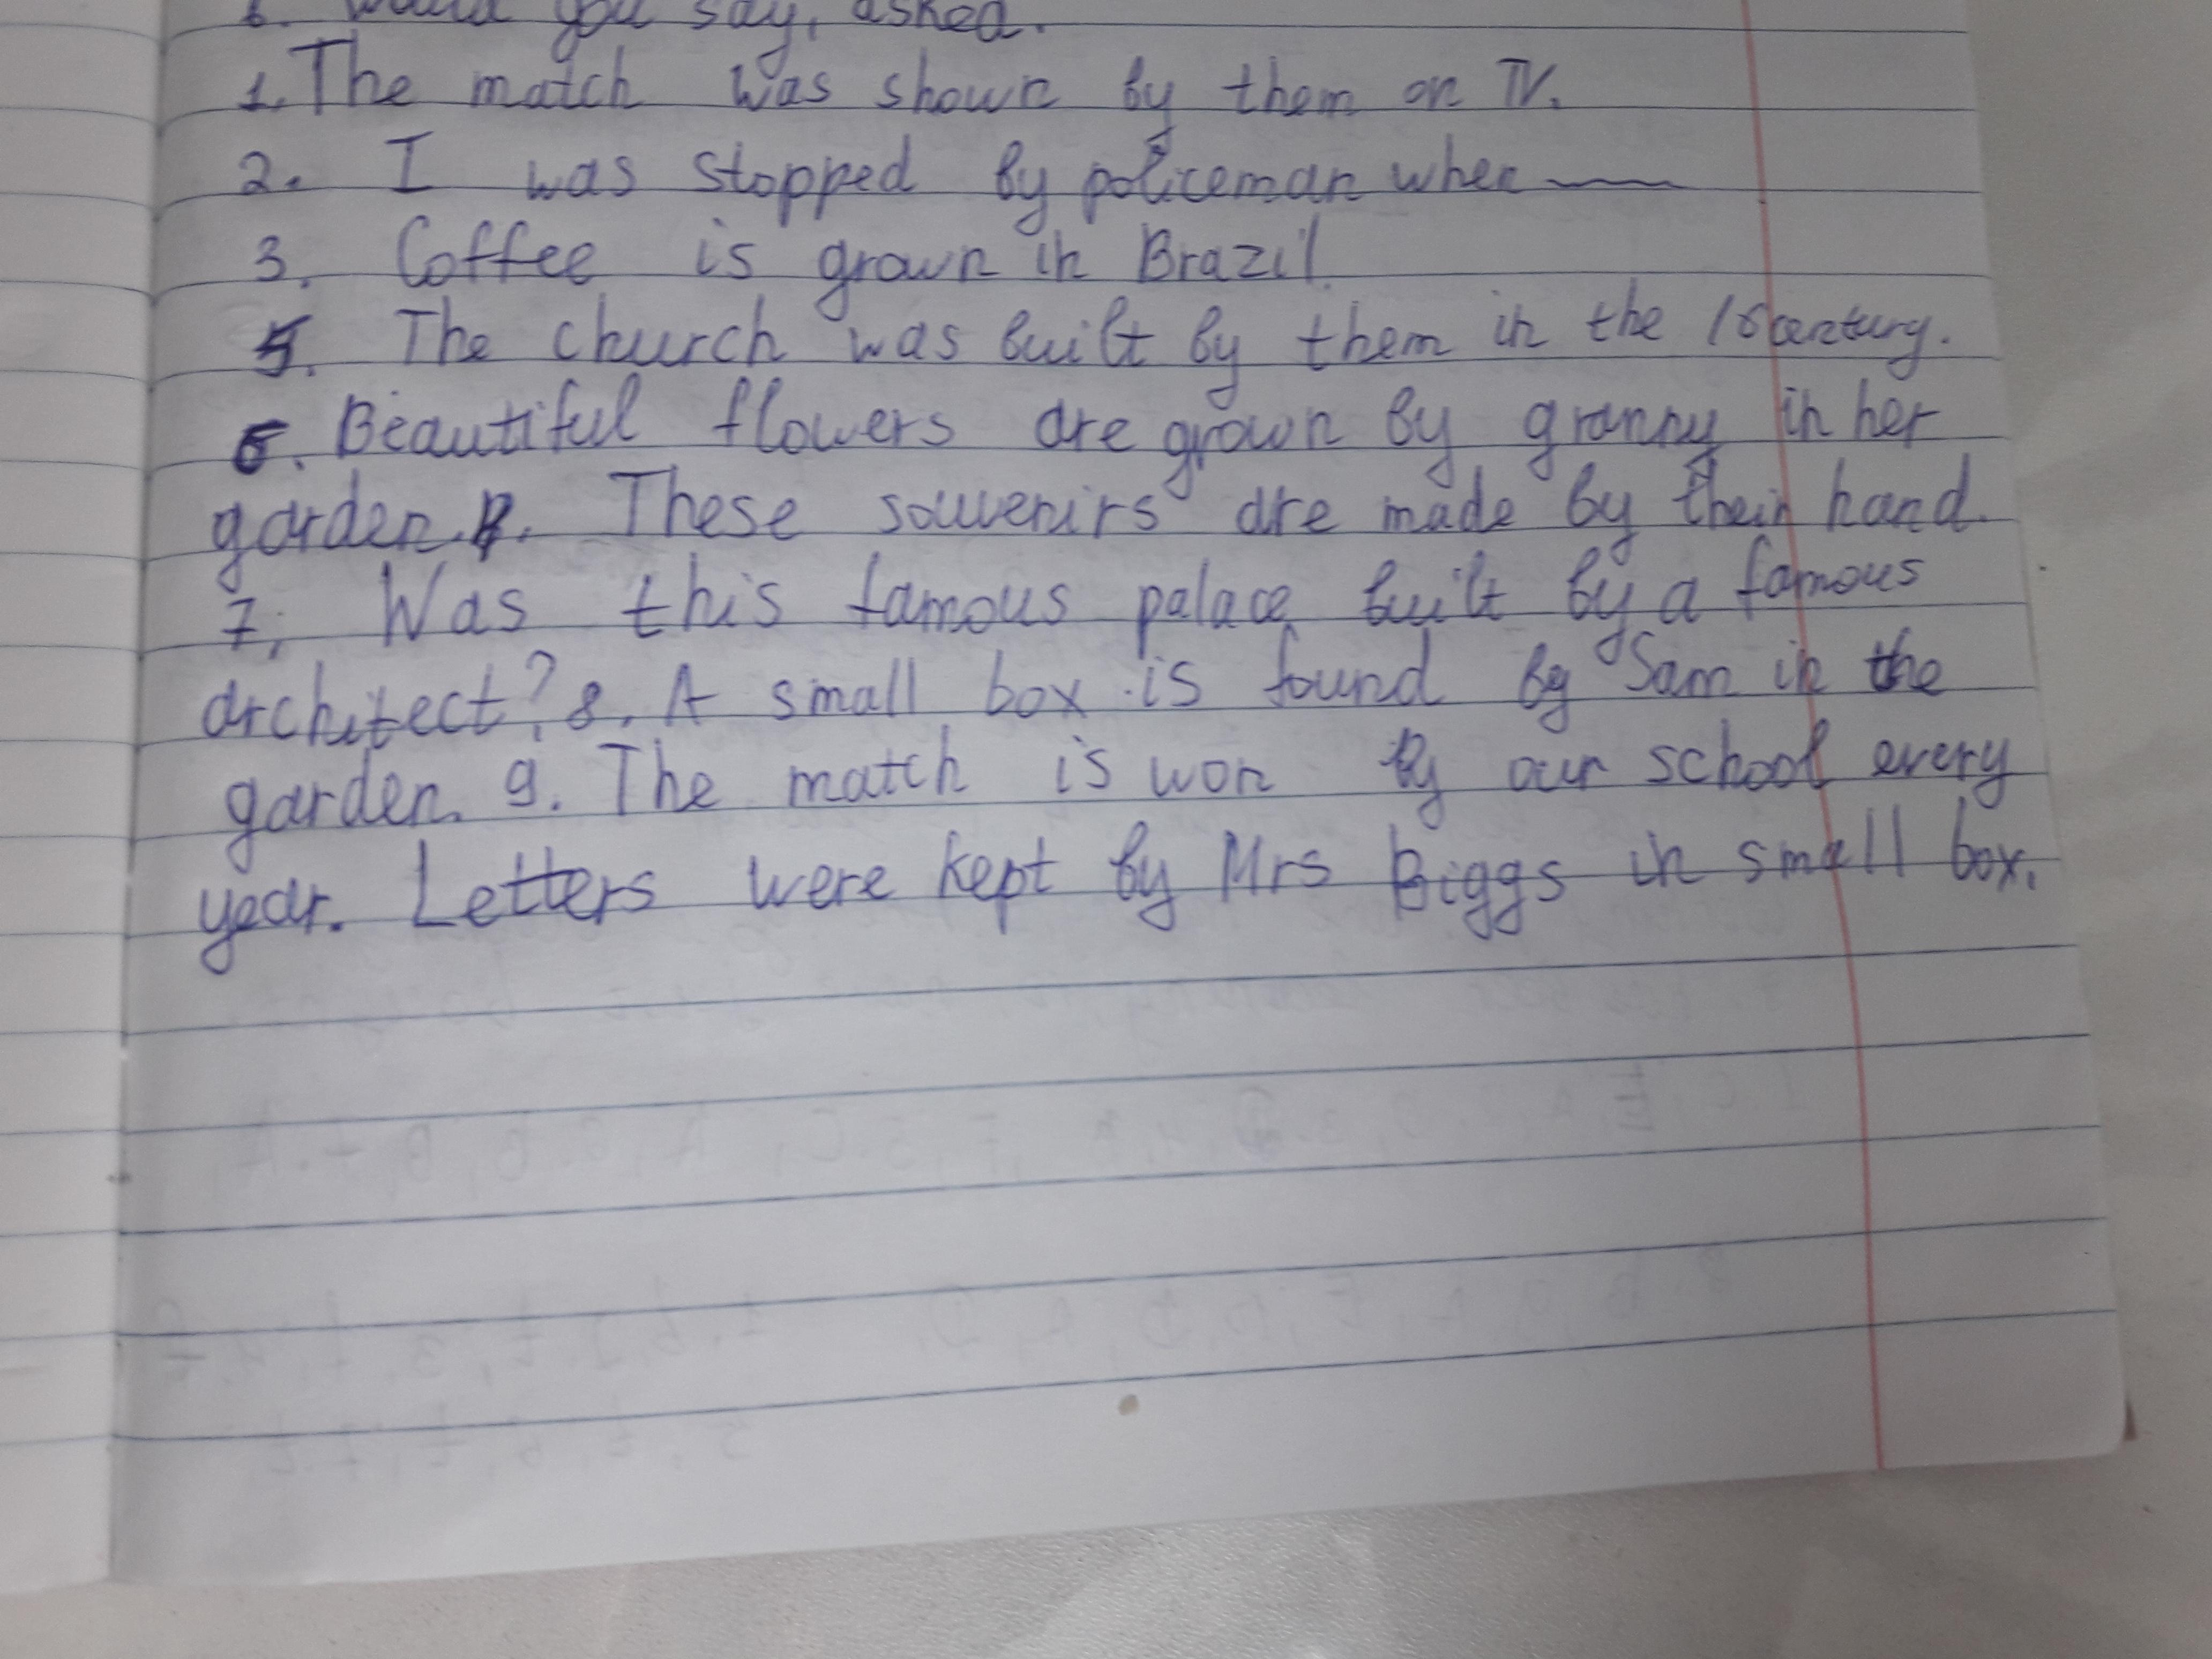 6. Would you say, asked.
1. The match was shown by them on TV.
2. I was stopped by policeman when
3. Coffee is grown in Brazil.
4. The church was built by them in the century.
5. Beautiful flowers are grown by granny in her
garden. These souvenirs are made by their hand.
7. Was this famous palace built by a famous
architect? 8. A small box is found by Sam in the
garden. 9. The match is won by our school every
year. Letters were kept by Mrs Biggs in small box.